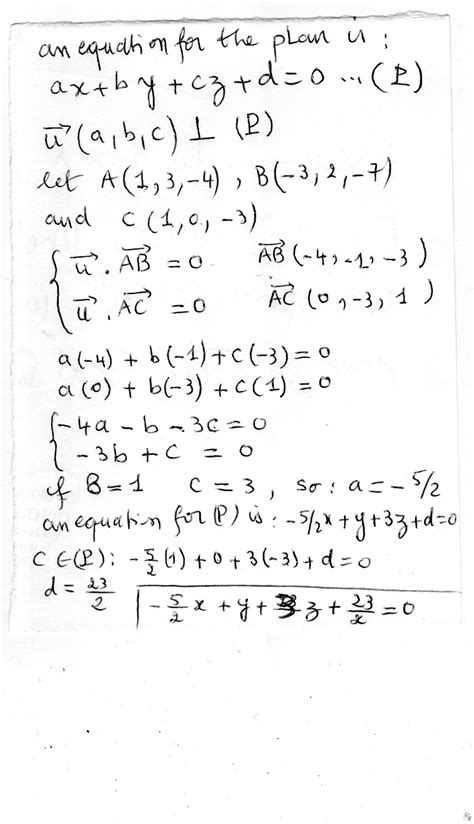 an equation for the plan is :
ax + by + cz + d = 0 ... (P)
u⃗ (a, b, c) ⊥ (P)
let A(1, 3, -4) , B(-3, 2, -7)
and C (1, 0, -3)
{ u⃗ . AB⃗ = 0 AB⃗ (-4, -1, -3)
{ u⃗ . AC⃗ = 0 AC⃗ (0, -3, 1)
a(-4) + b(-1) + c(-3) = 0
a(0) + b(-3) + c(1) = 0
{ -4a - b - 3c = 0
{ -3b + c = 0
if B = 1 c = 3 , so : a = - 5/2
an equation for (P) is : -5/2x + y + 3z + d = 0
C ∈ (P) : - 5/2 (1) + 0 + 3(-3) + d = 0
d = 23/2 - 5/2 x + y + 3 z + 23/2 = 0